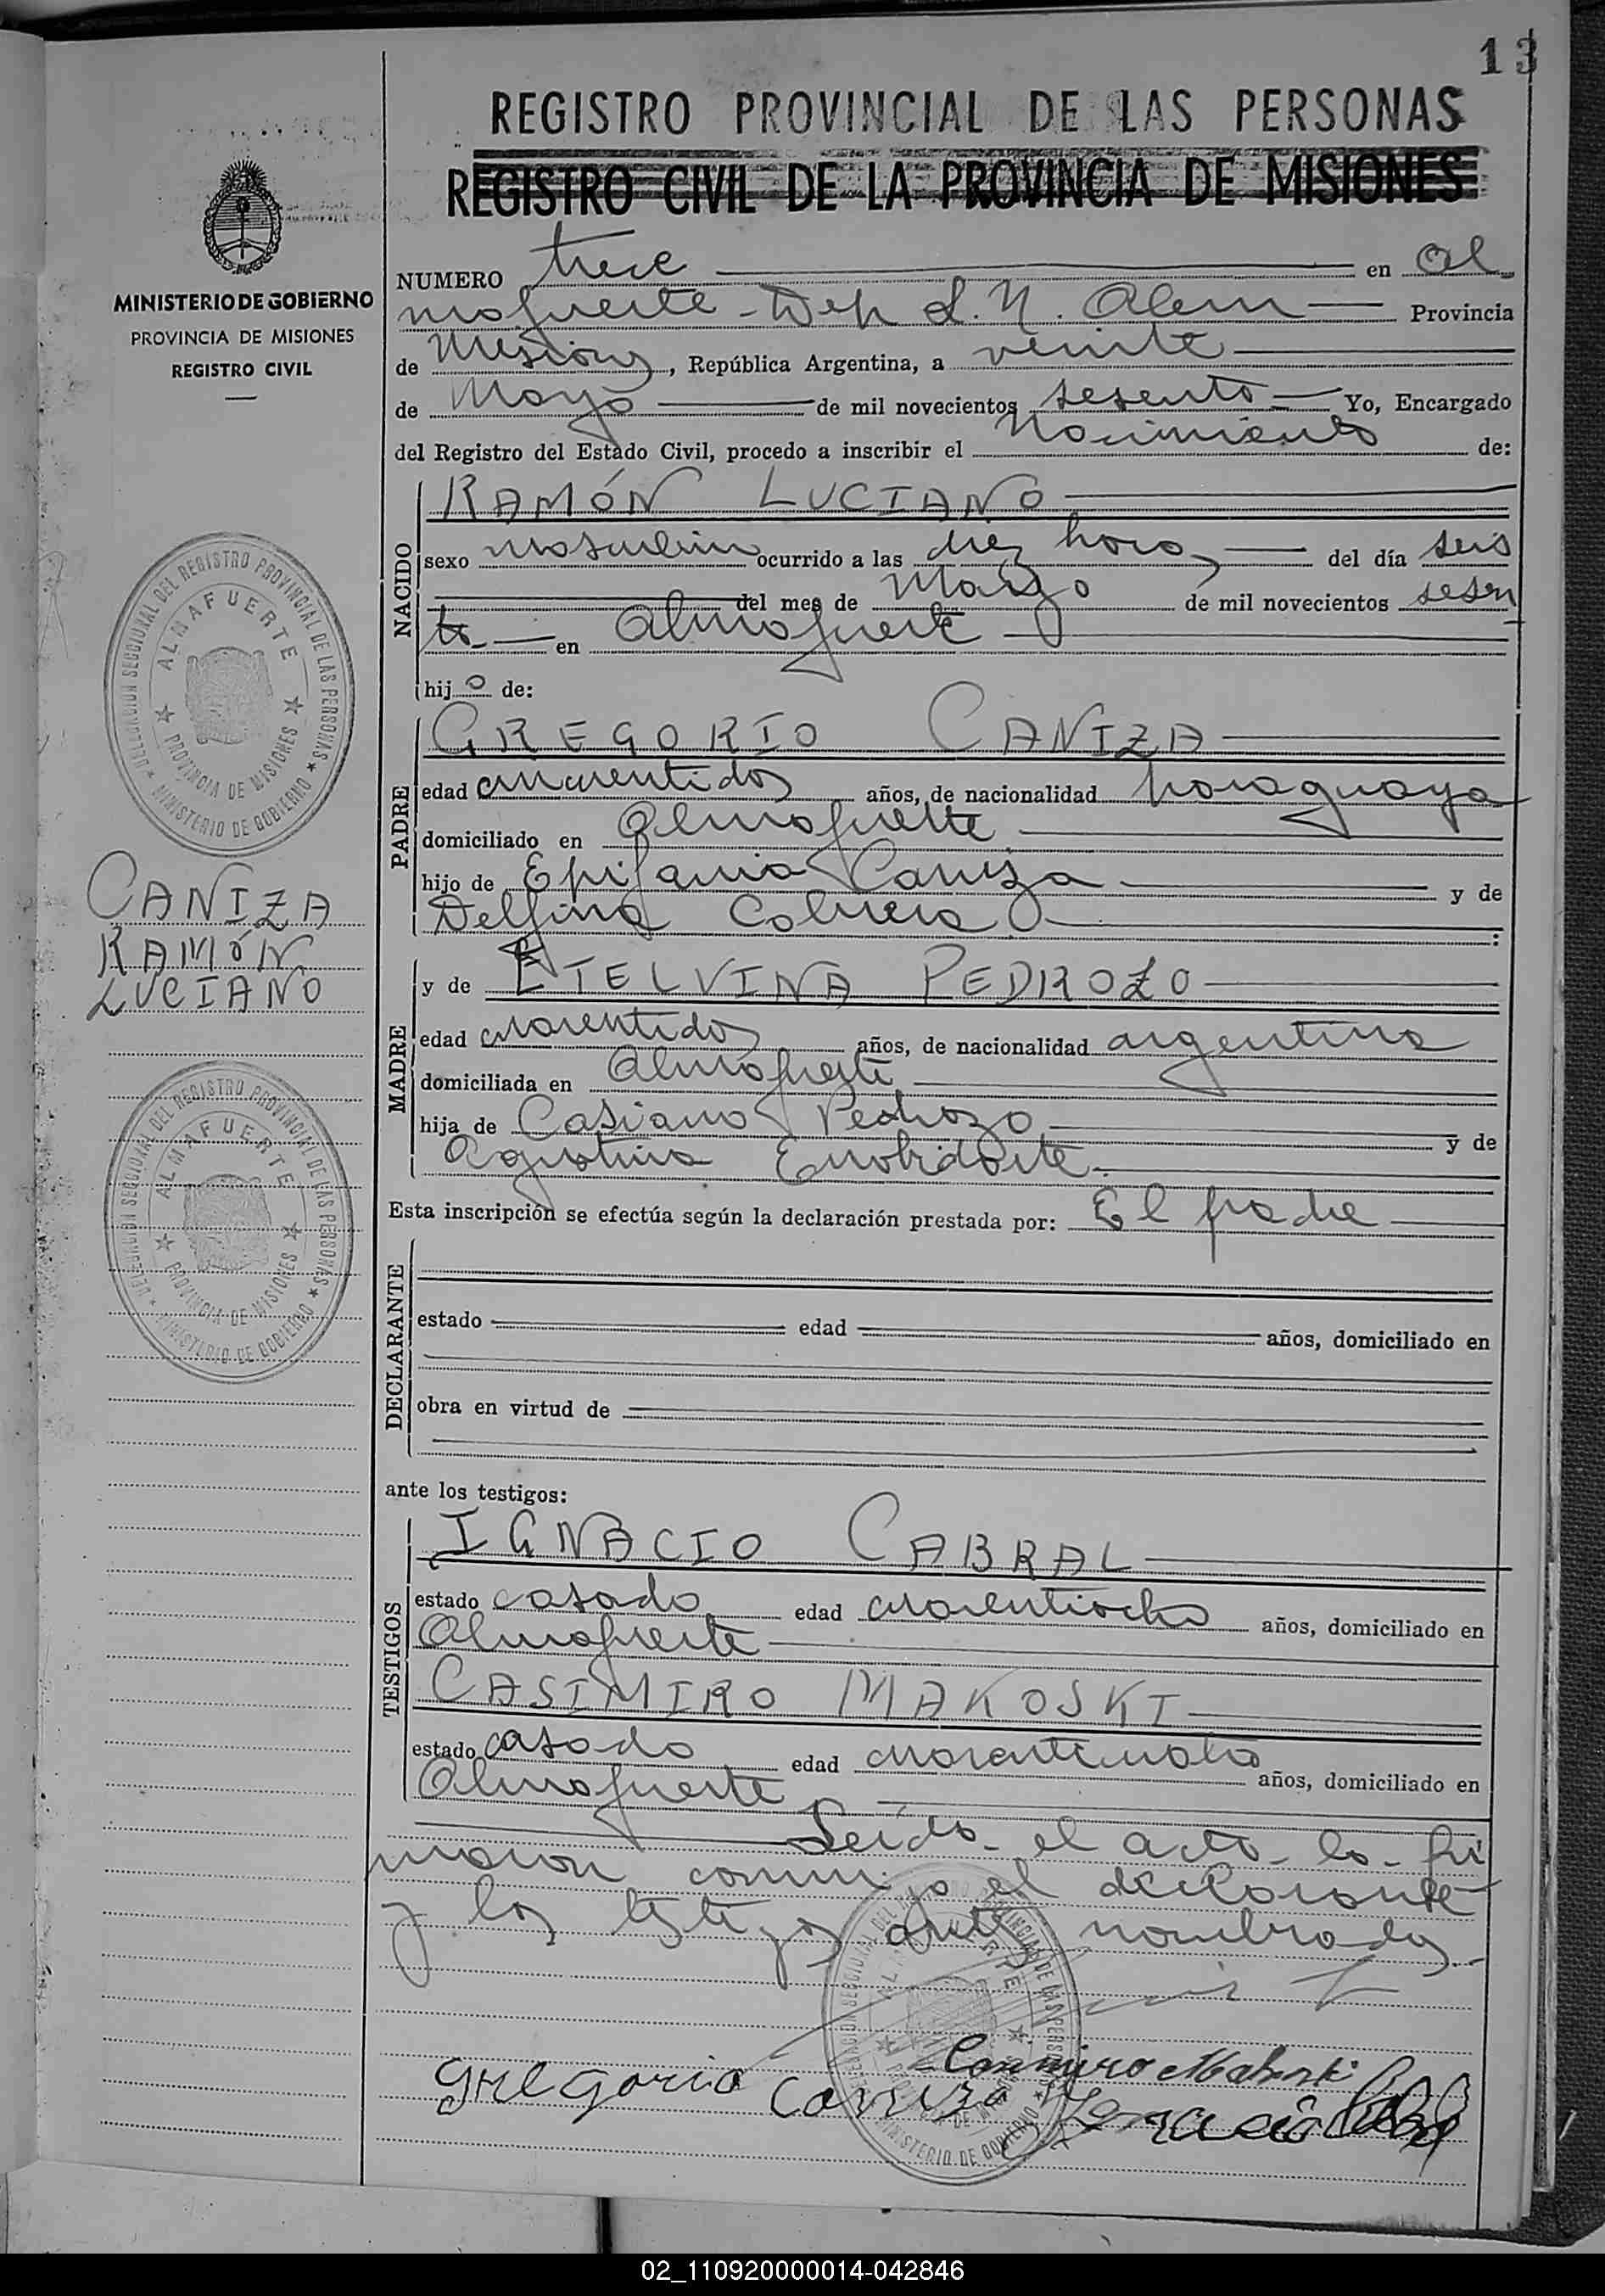 13
REGISTRO PROVINCIAL DE LAS PERSONAS
REGISTRO CIVIL DE LA PROVINCIA DE MISIONES
MINISTERIO DE GOBIERNO
PROVINCIA DE MISIONES
REGISTRO CIVIL
NUMERO trece en Al
mafuerte - Dep L. N. Alem Provincia
de Misiones, República Argentina, a veinte
de Mayo de mil novecientos sesenta Yo, Encargado
del Registro del Estado Civil, procedo a inscribir el Nacimiento de:
NACIDO
RAMÓN LUCIANO
sexo masculino ocurrido a las diez horas del día seis
del mes de Marzo de mil novecientos sesen
ta en Almafuerte
hijo de:
PADRE
GREGORIO CANIZA
edad cuarentidos años, de nacionalidad paraguaya
domiciliado en Almafuerte
hijo de Epifania Caniza y de
Delfina Cabrera
MADRE
y de ETELVINA PEDROZO
edad cuarentidos años, de nacionalidad argentina
domiciliada en Almafuerte
hija de Casiano Pedrozo y de
Agustina
Esta inscripción se efectúa según la declaración prestada por: El padre
DECLARANTE
estado edad años, domiciliado en
obra en virtud de
ante los testigos:
TESTIGOS
IGNACIO CABRAL
estado casado edad cuarentiocho años, domiciliado en
Almafuerte
CASIMIRO MAKOSKI
estado casado edad años, domiciliado en
Almafuerte
Leida el acta la fir
maron conmigo el declarante
y los testigos antes nombrados.
Casimiro Makoski
Gregorio Caniza Ignacio Cabral
DELEGACION SECCIONAL DEL REGISTRO PROVINCIAL DE LAS PERSONAS
MINISTERIO DE GOBIERNO
ALMAFUERTE
PROVINCIA DE MISIONES
CANIZA
RAMÓN
LUCIANO
DELEGACION SECCIONAL DEL REGISTRO PROVINCIAL DE LAS PERSONAS
MINISTERIO DE GOBIERNO
ALMAFUERTE
PROVINCIA DE MISIONES
02_110920000014-042846